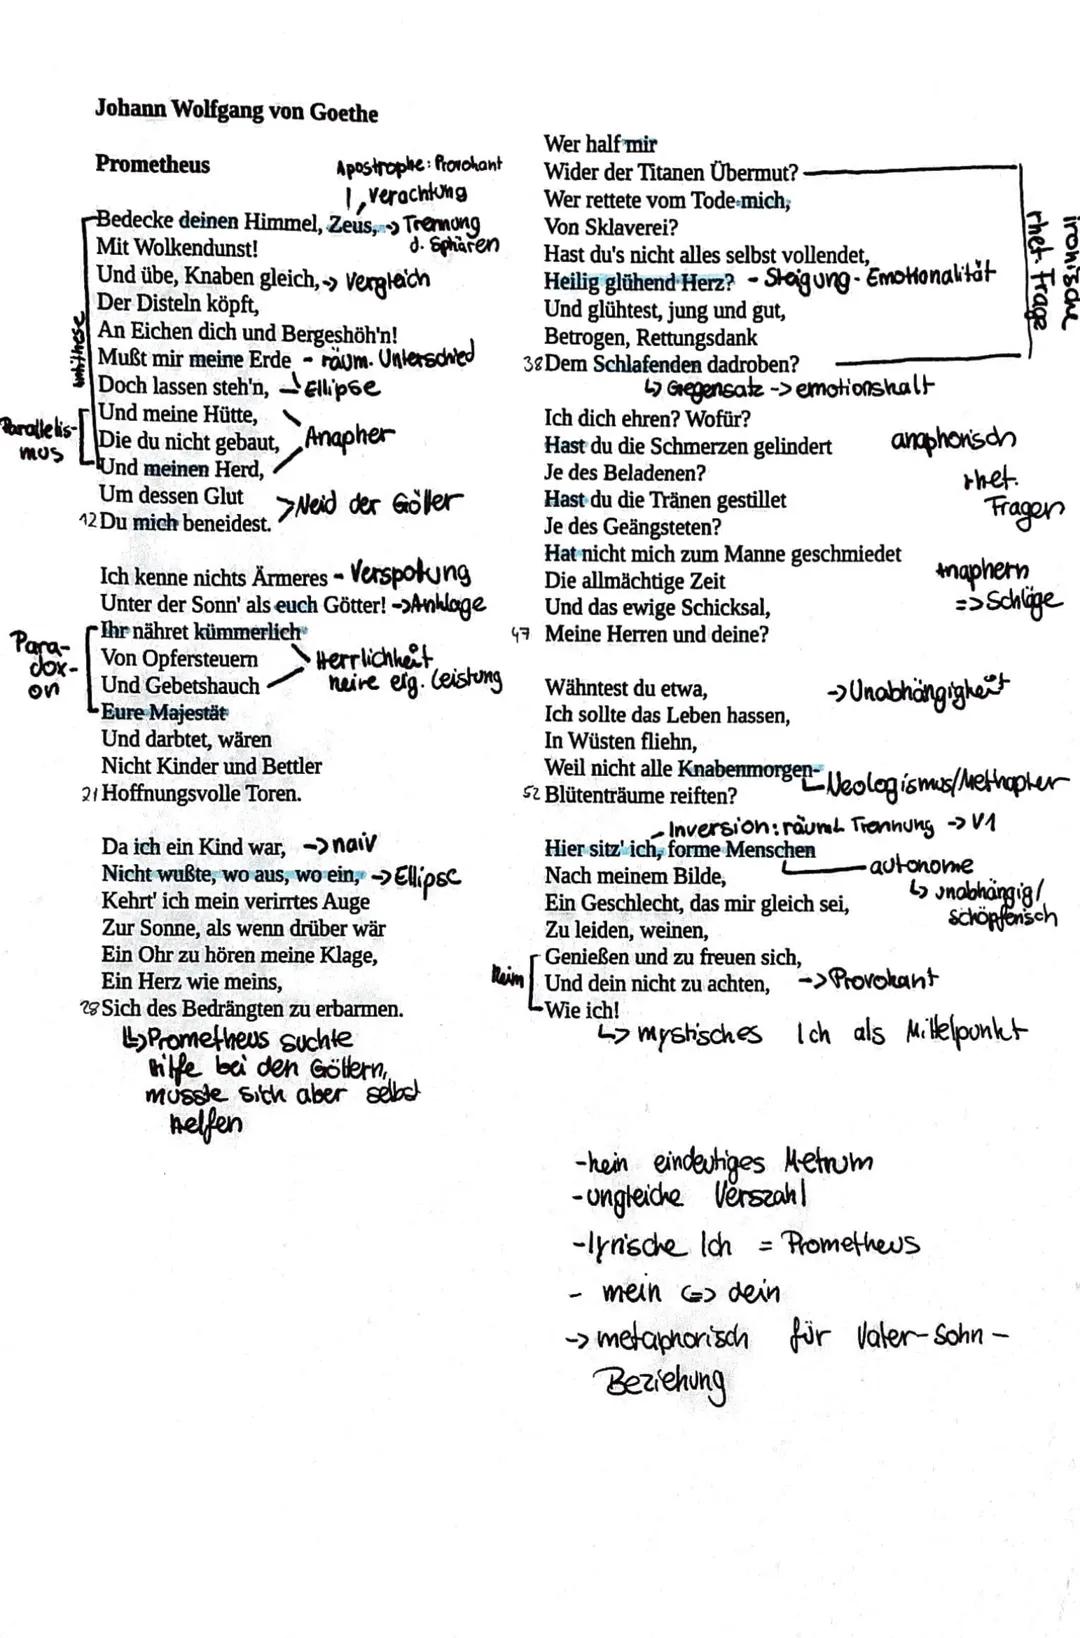 Johann Wolfgang von Goethe
Prometheus
Apostrophe: Provokant
, Verachtung
Bedecke deinen Himmel, Zeus, -> Trennung
d. Sphären
Mit Wolkendunst!
Und übe, Knaben gleich, -> Vergleich
Der Disteln köpft,
An Eichen dich und Bergeshöh'n!
Mußt mir meine Erde - räum. Unterschied
Doch lassen steh'n, Ellipse
Und meine Hütte,
Die du nicht gebaut, Anapher
Und meinen Herd,
Um dessen Glut
>Neid der Götter
12 Du mich beneidest.
Antithese
Parallelis-
mus
Ich kenne nichts Ärmeres - Verspottung
Unter der Sonn' als euch Götter! -> Anklage
Ihr nähret kümmerlich
Von Opfersteuern
Herrlichkeit
Und Gebetshauch
keine eig. Leistung
Eure Majestät
Und darbtet, wären
Nicht Kinder und Bettler
21 Hoffnungsvolle Toren.
Para-
dox-
on
Da ich ein Kind war, -> naiv
Nicht wußte, wo aus, wo ein, -> Ellipse
Kehrt' ich mein verirrtes Auge
Zur Sonne, als wenn drüber wär
Ein Ohr zu hören meine Klage,
Ein Herz wie meins,
28 Sich des Bedrängten zu erbarmen.
Prometheus suchte
Hilfe bei den Göttern,
musste sich aber selbst
helfen
Wer half mir
Wider der Titanen Übermut?
Wer rettete vom Tode mich,
Von Sklaverei?
Hast du's nicht alles selbst vollendet,
Heilig glühend Herz? - Steigung - Emotionalität
Und glühtest, jung und gut,
Betrogen, Rettungsdank
38 Dem Schlafenden dadroben?
Gegensatz -> emotionshalt
ironische
rhet. Frage
Ich dich ehren? Wofür?
Hast du die Schmerzen gelindert
anaphorisch
Je des Beladenen?
rhet.
Hast du die Tränen gestillet
Fragen
Je des Geängsteten?
Hat nicht mich zum Manne geschmiedet
Die allmächtige Zeit
Anaphern
Und das ewige Schicksal,
=> Schläge
47 Meine Herren und deine?
Wähntest du etwa,
-> Unabhängigkeit
Ich sollte das Leben hassen,
In Wüsten fliehn,
Weil nicht alle Knabenmorgen-
Neologismus/Methapher
52 Blütenträume reiften?
Inversion: räuml. Trennung -> V1
Hier sitz' ich, forme Menschen
autonome
Nach meinem Bilde,
unabhängig/
schöpferisch
Ein Geschlecht, das mir gleich sei,
Zu leiden, weinen,
Genießen und zu freuen sich,
Reim
Und dein nicht zu achten, -> Provokant
Wie ich!
mystisches Ich als Mittelpunkt
-kein eindeutiges Metrum
-ungleiche Verszahl
-lyrische Ich = Prometheus
- mein <=> dein
-> metaphorisch für Vater-Sohn-
Beziehung